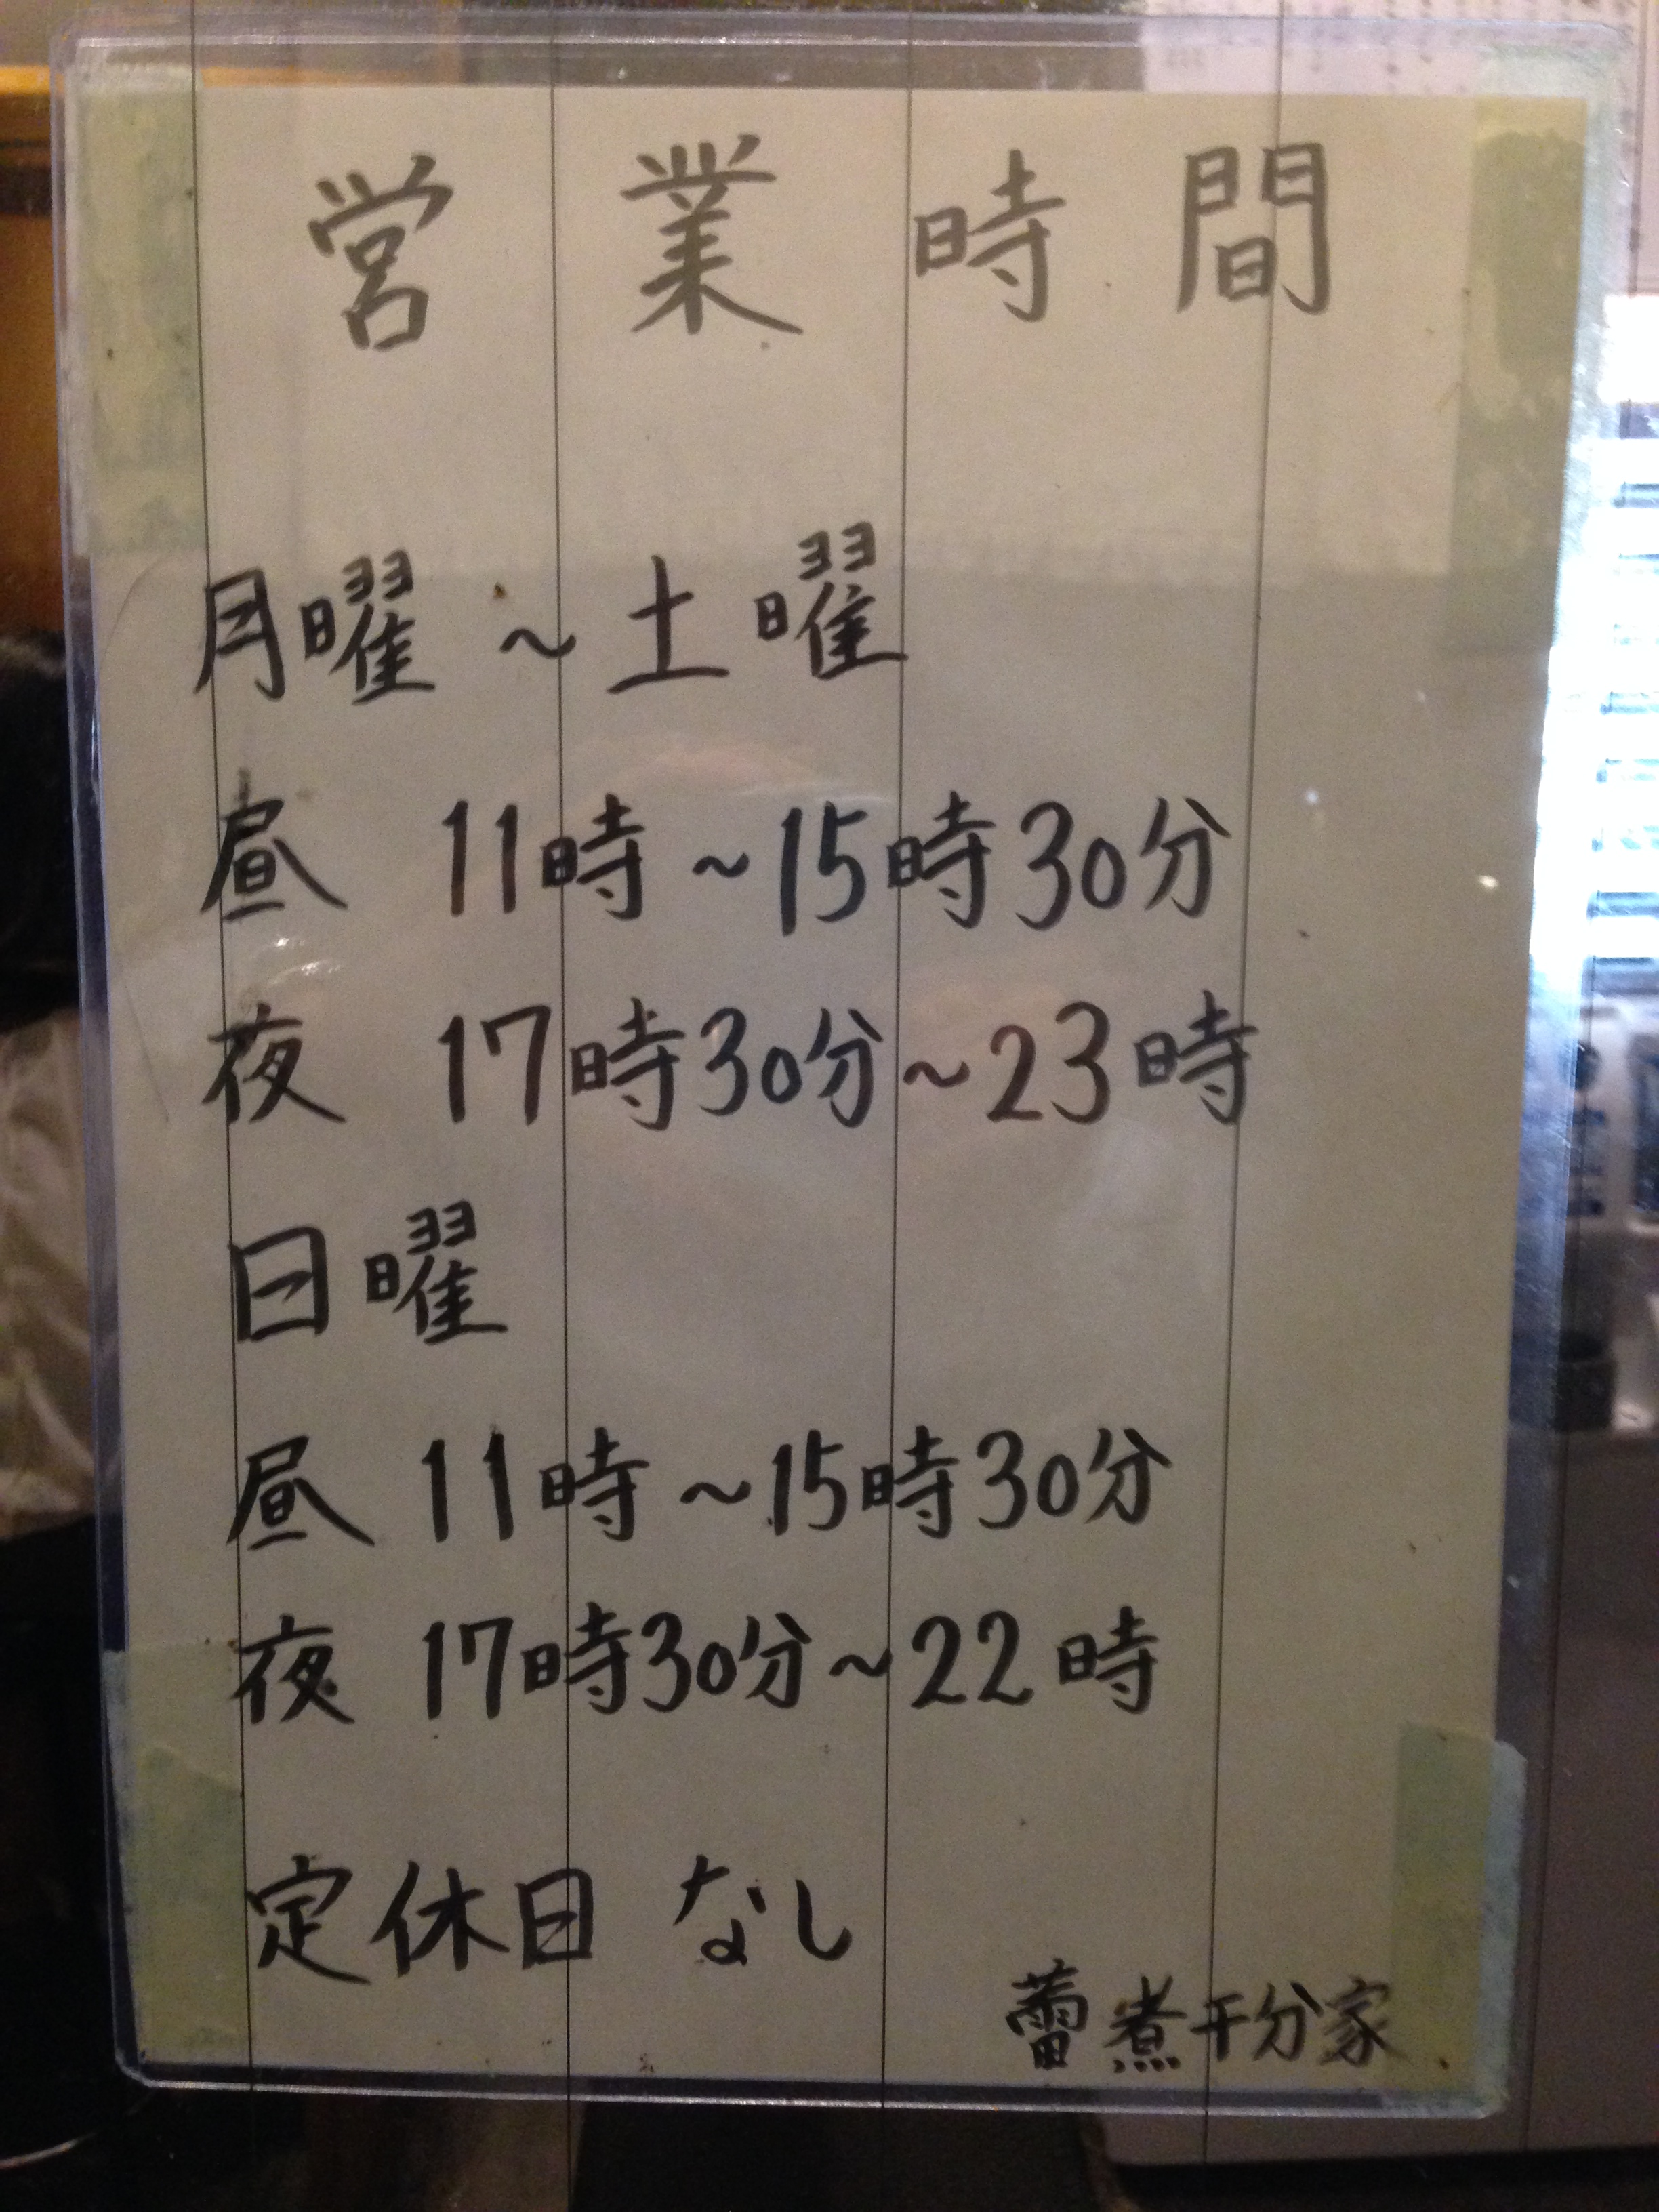 営業時間
月曜～土曜
昼 11時～15時30分
夜 17時30分～23時
日曜
昼 11時～15時30分
夜 17時30分～22時
定休日 なし
蕾煮干分家